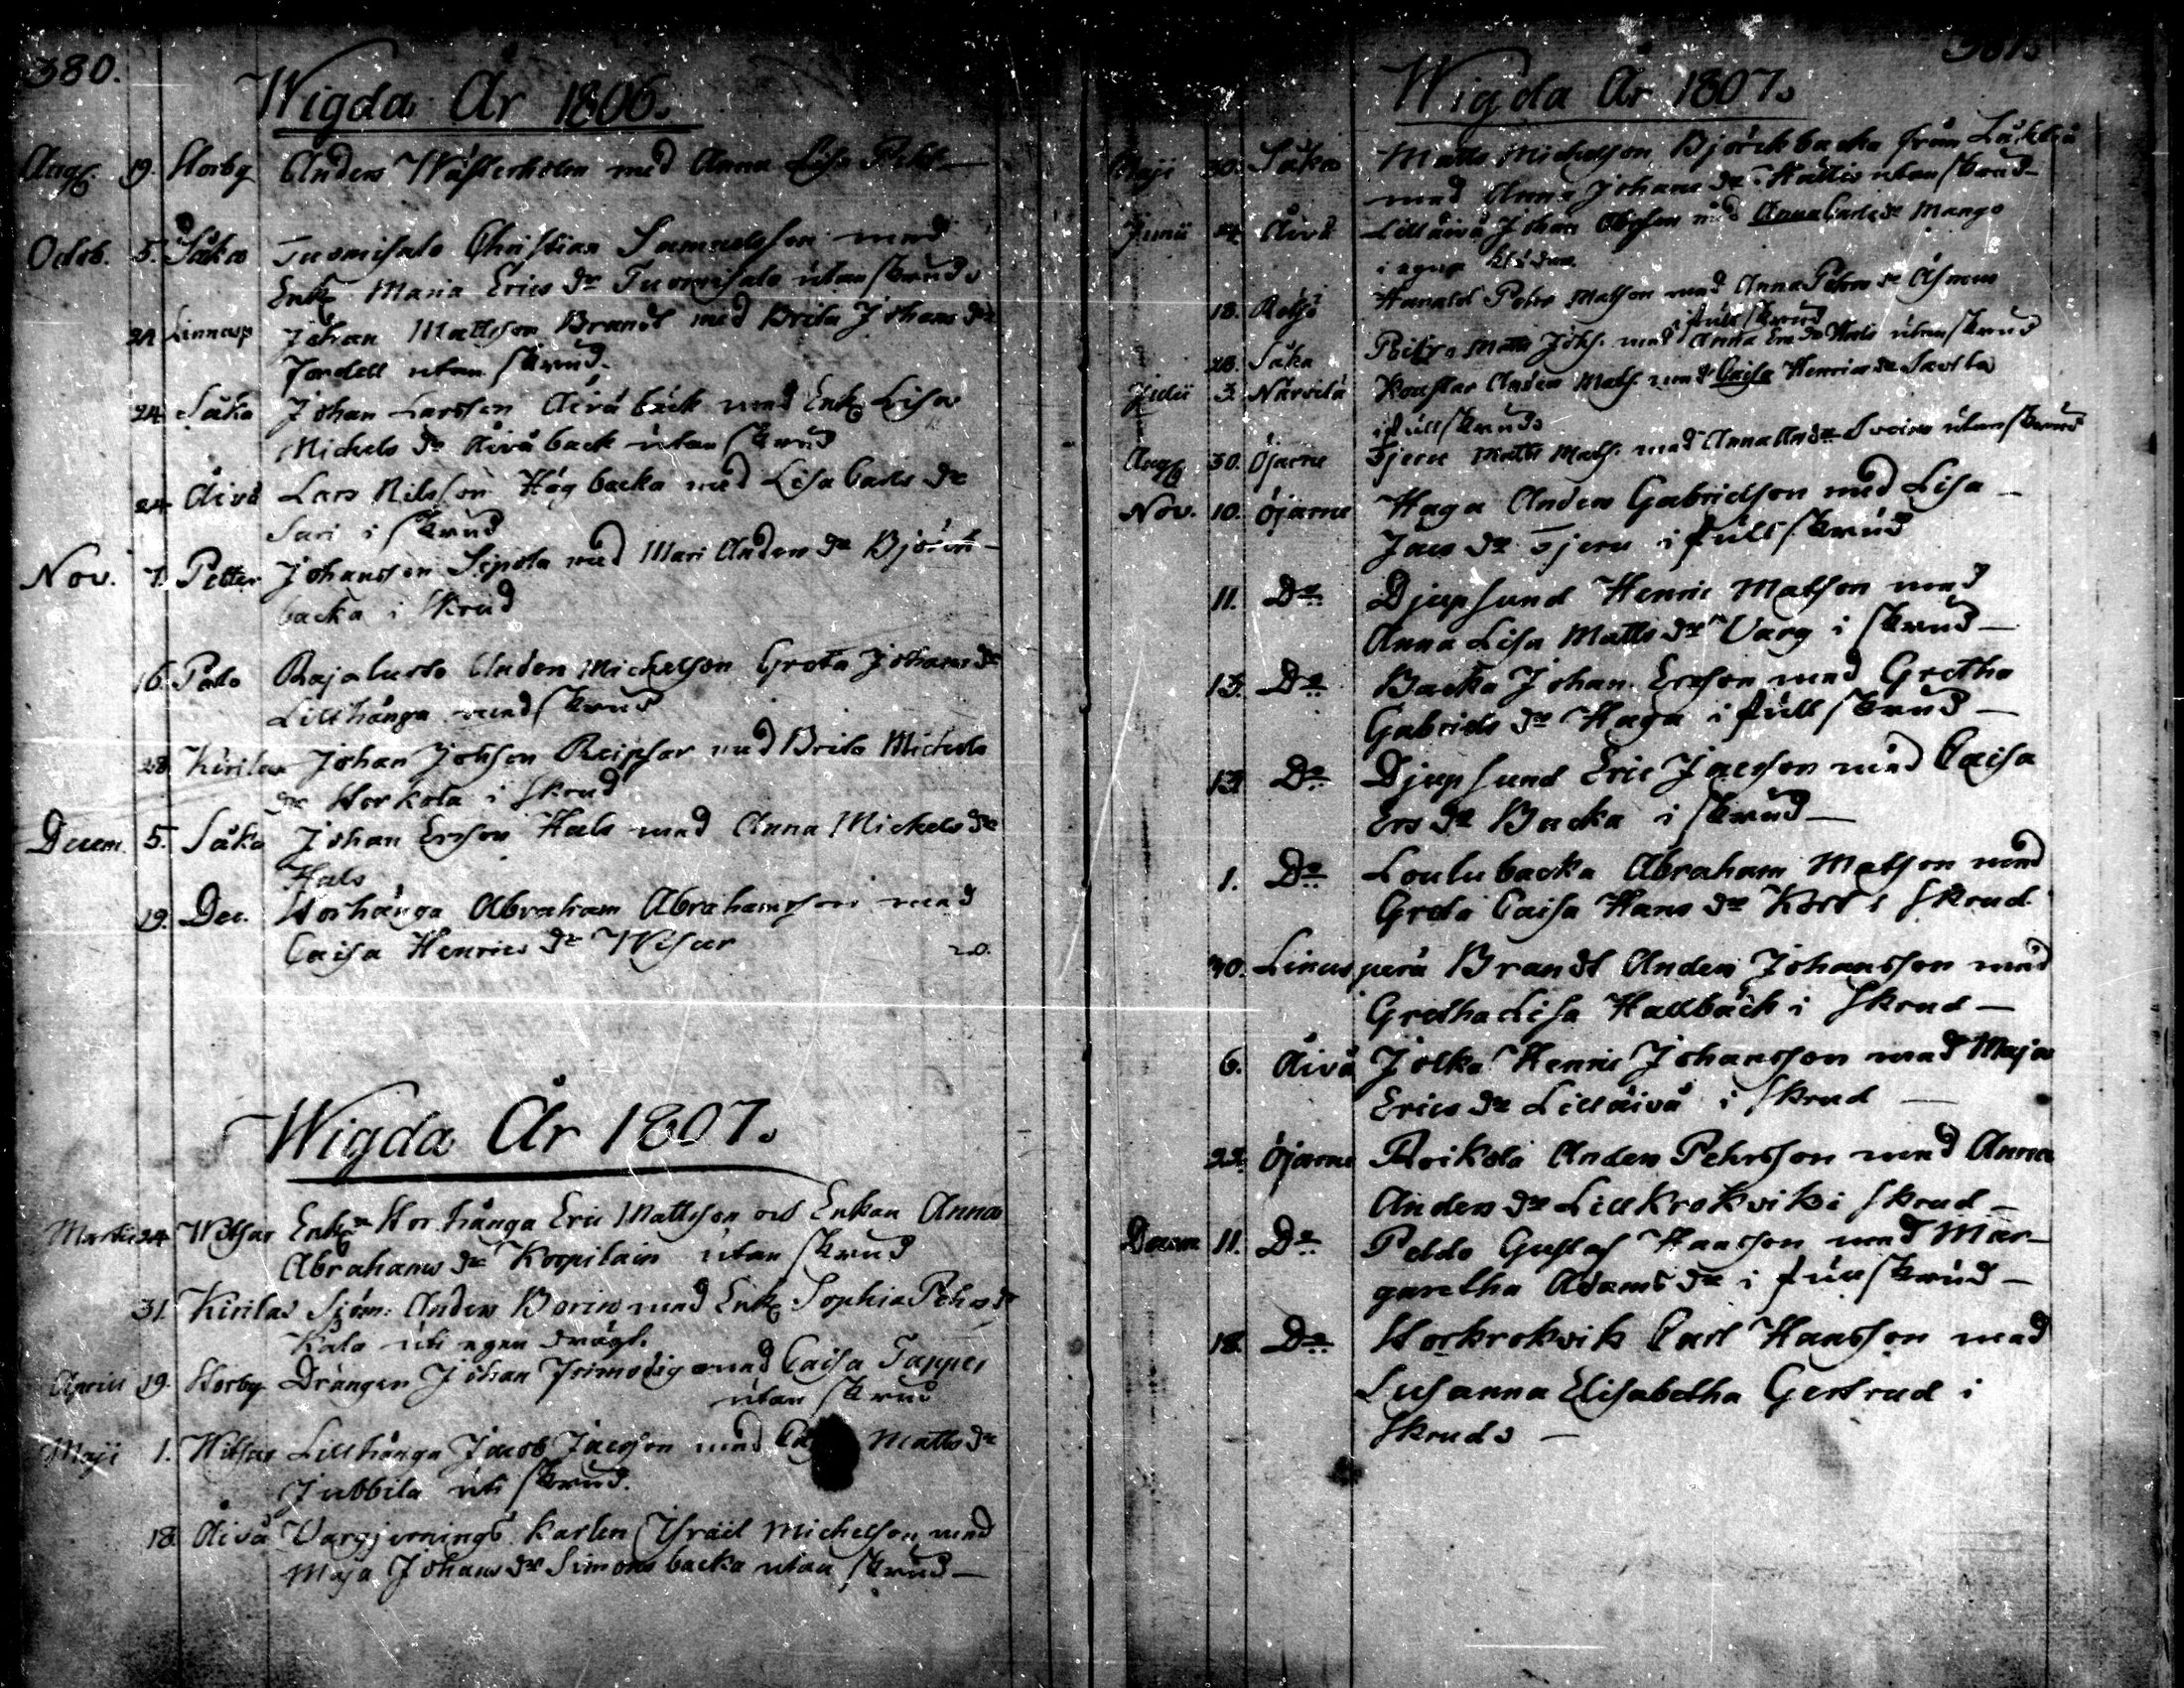 380.
Wigda År 1806.
Aug. 19. Storby Anders Wästerholm med Anna Lisa
Octob. 5. Såka Tuomisalo Christian Samuelsson med
Enk. Maria Erics Dr Tuomisalo utan skrud
21 Linnusp Johan Mattsson Brandt med Brita Johans Dr
Jordell utan skrud.
24 Såka Johan Larsson Åivåbäck med Enk. Lisa
Michels Dr Åivåback utan skrud
24 Åivå Lars Nilsson Högbacka med Lisa Carls Dr
Sari i skrud
Nov. 7. Petter Johansson Sipola med Mari Anders Dr Björck-
backa i skrud
16. Palo Rajalusto Anders Michelson Greta Johans Dr
Lillhånga med skrud
28 Kirilax Johan Johsson Reipsar med Brita Michels
Dr Storkola i skrud
Decem. 5. Såka Johan Ersson Hals med Anna Michels Dr
Hals
19. Dec. Storhånga Abraham Abrahamsson med
Caisa Henrics Dr Wisur 20.
Wigda År 1807.
Martii 24 Witsar Enk. Storhånga Eric Mattsson och Enkan Anna
Abrahams Dr Korpilain utan skrud
31. Kirilax Sjöm. Anders Borin med Enk. Sophia Pehrs Dr
Kala uti egen drägt.
Aprill 19. Storby Drängen Johan Frimodig med Caisa Tapper
utan skrud
Maji 1. Witsar Lillhånga Jacob Jacsson med Matts Dr
Jubbila uti skrud.
18. Åivå Vargjernings karlen Israel Michelson med
Maja Johans Dr Simonsbacka utan skrud
Wigda År 1807.
Maji 30. Såka Matts Michelson Björckbacka från
med Anna Johans Dr utan skrud
Junii 24 Åivå Lillåivå Johan med Anna Carls Dr Mango
i egna kläder.
18. Harald Petter Matson med Anna Pehrs Dr Åsmus
i full skrud
28. Såka Matts Johs. med Anna Ers Dr Hals utan skrud
Julii 3. Närvilä Anders Mats. med Caisa Henrics Dr
i full skrud
Aug. 30. Öjarne Fjeru Matts Mats. med Anna And. Dr utan skrud
Nov. 10. Öjarne Haga Anders Gabrielson med Lisa
Jacs Dr Fjeru i full skrud
11. Do Djupsund Henric Matson med
Anna Lisa Matts Dr Varg i skrud
13. Do Backa Johan Ersson med Gretha
Gabriels Dr Haga i full skrud
13 Do Djupsund Eric Jacsson med Caisa
Ers Dr Backa i skrud
1. Do Loulubacka Abraham Matson med
Greta Caisa Hans Dr Kort i skrud
30. Linusperä Brandt Anders Johansson med
Gretha Lisa Hallbäck i skrud
6. Åivå Jolka Henric Johansson med Maja
Erics Dr Lillåivå i skrud
22. Öjarne Roikola Anders Pehrsson med Anna
Anders Dr Lillkrokvik i skrud
Decem 11. Do Peldo Gustaf Hansson med Mar-
garetha Adams Dr i full skrud
18. Do Storkrokvik Carl Hansson med
Susanna Elisabetha Gertrud i
skrud